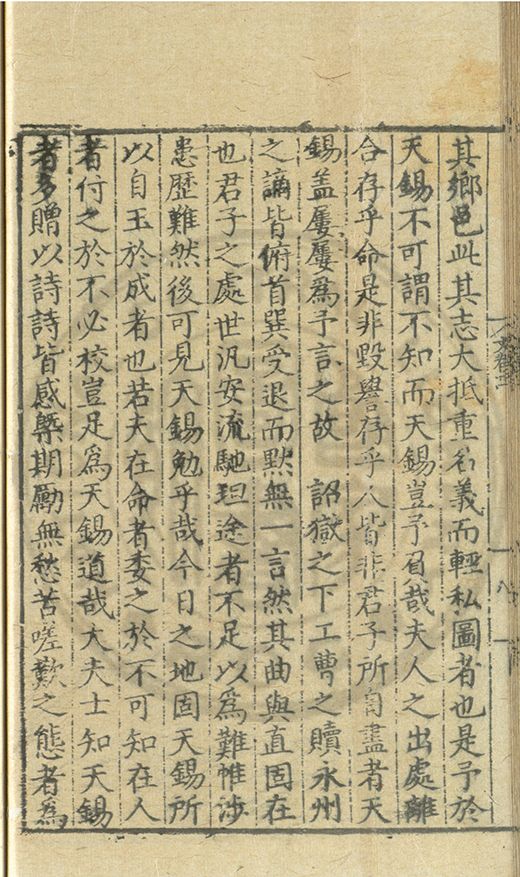 其鄉邑此其志大抵重名義而輕私圖者也是予於
天錫不可謂不知而天錫豈予負哉夫人之出處離
合存乎命是非毀譽存乎人皆非君子所自盡者天
錫盖屢屢爲予言之故 詔獄之下工曹之贖永州
之謫皆俯首巽受退而默無一言然其曲與直固在
也君子之處世汎安流馳坦途者不足以爲難惟涉
患歷難然後可見天錫勉乎哉今日之地固天錫所
以自玉於成者也若夫在命者委之於不可知在人
者付之於不必校豈足爲天錫道哉大夫士知天錫
者多贈以詩詩皆感槩期勵無愁苦嗟歎之態者爲
文卷二
八